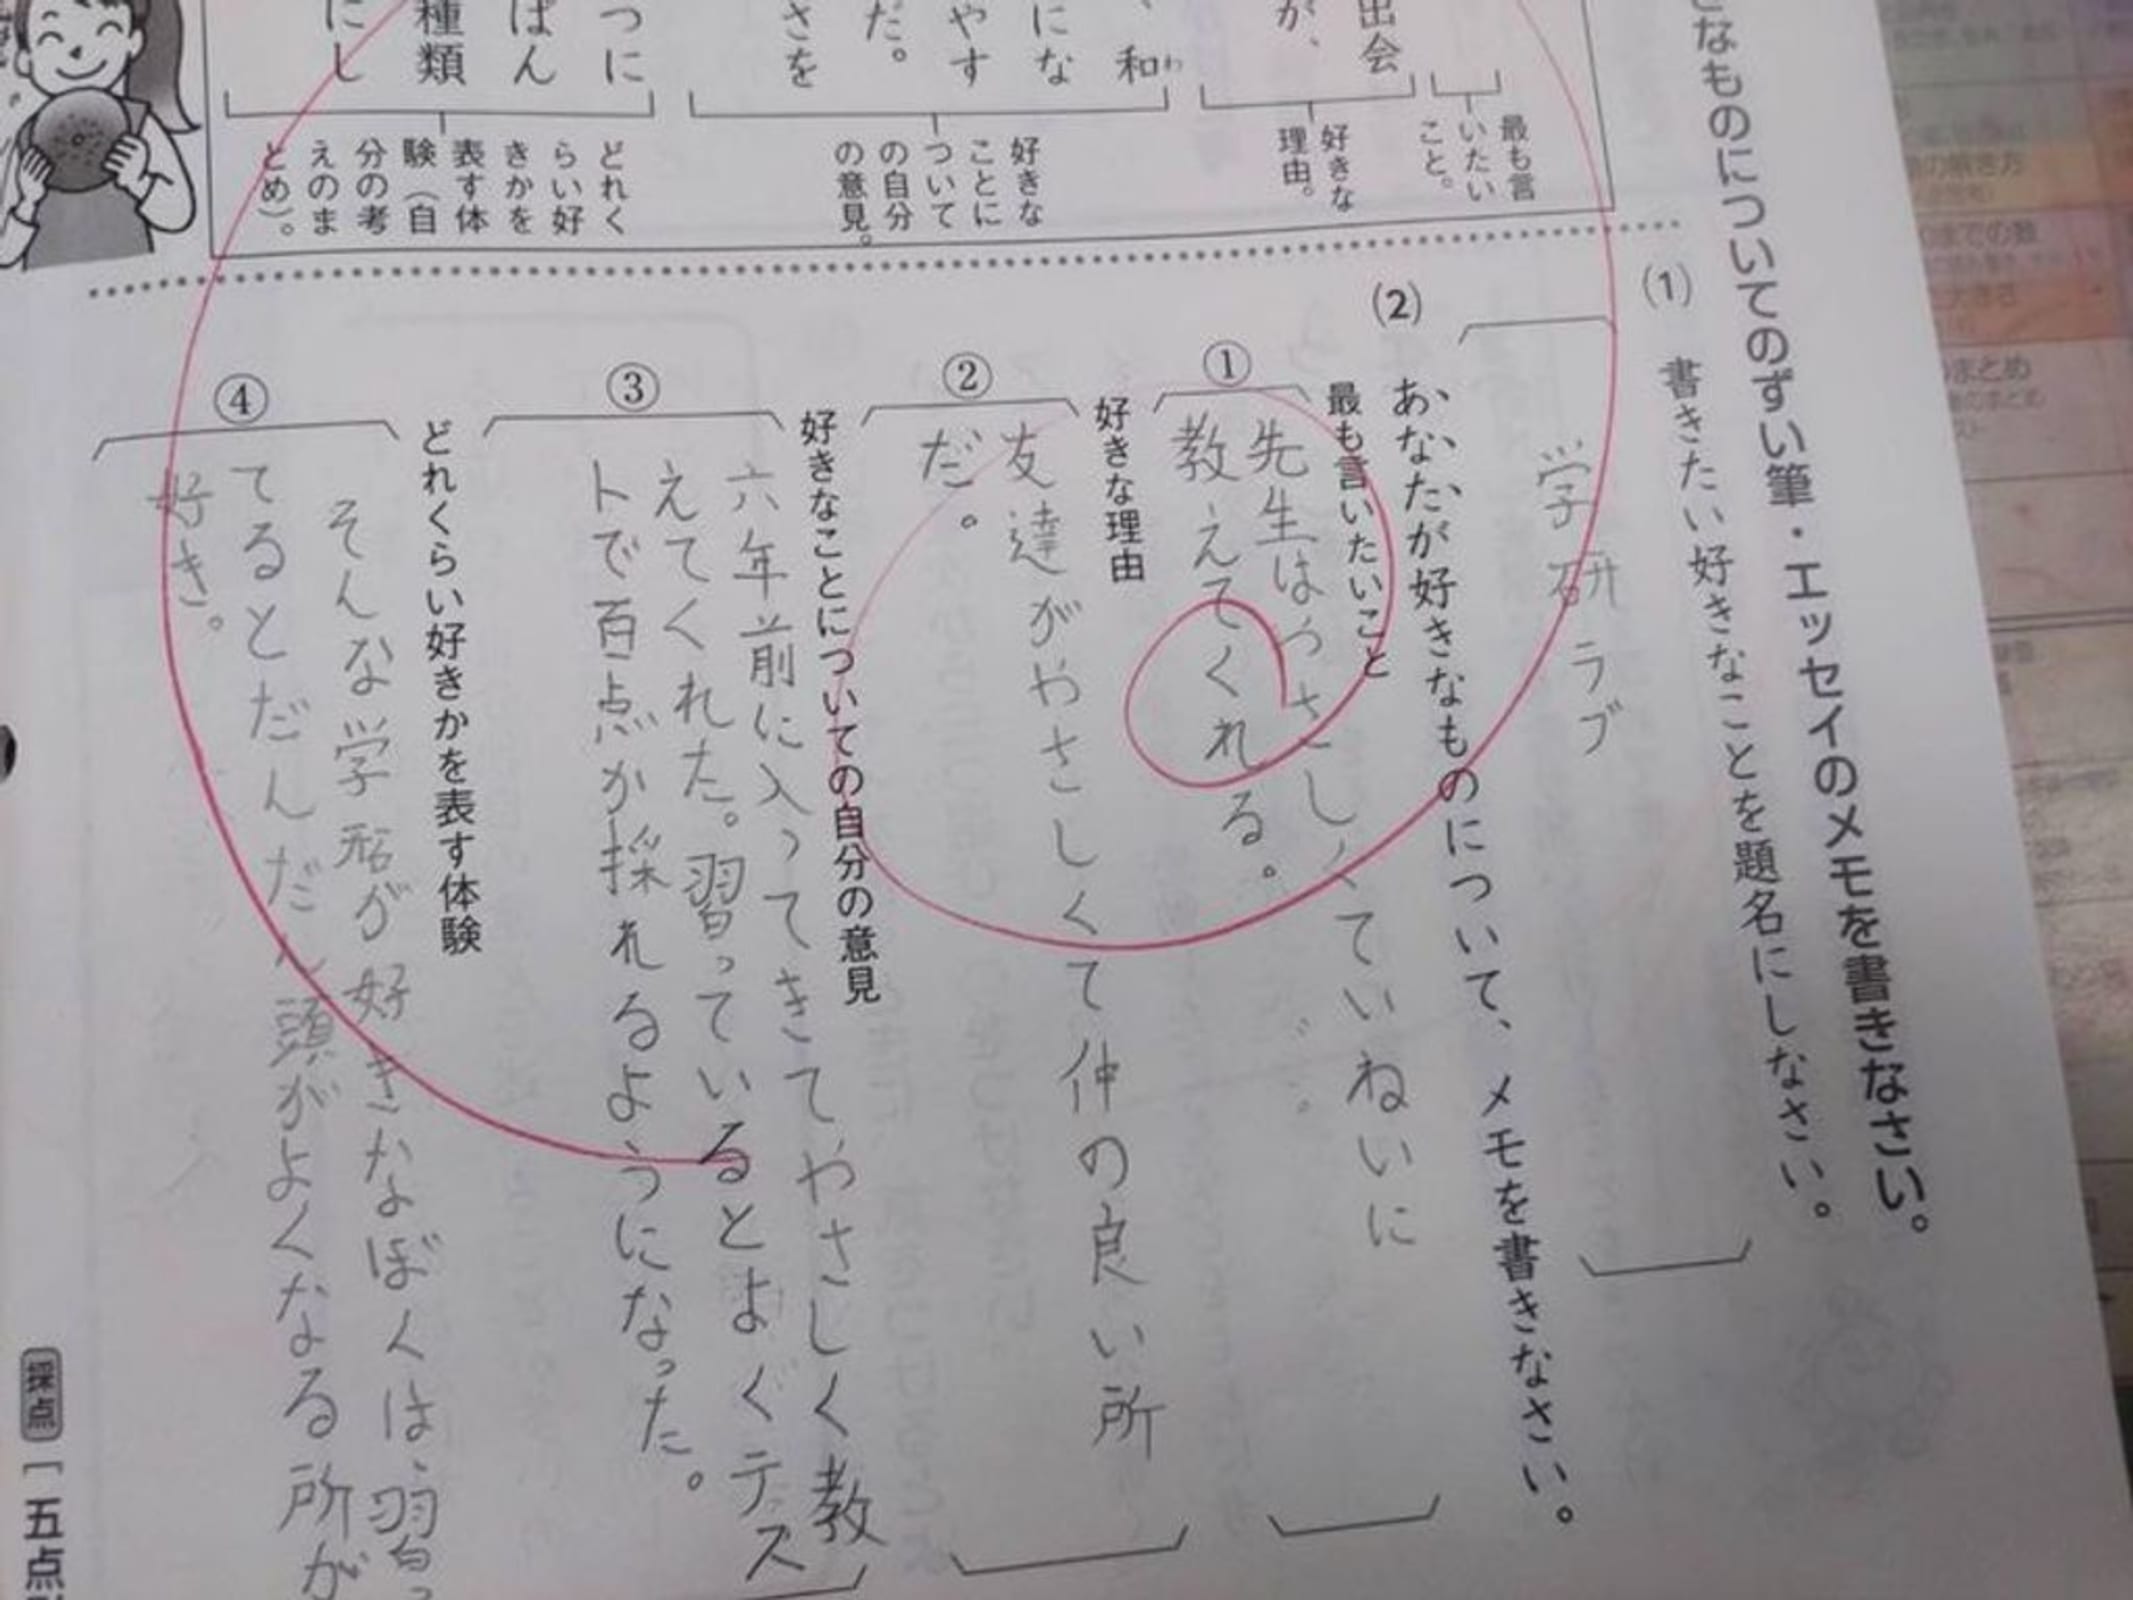 なものについてのずい筆・エッセイのメモを書きなさい。
(1) 書きたい好きなことを題名にしなさい。
学研ラブ
(2) あなたが好きなものについて、メモを書きなさい。
① 最も言いたいこと
先生はやさしくていねいに
教えてくれる。
② 好きな理由
友達がやさしくて仲の良い所
だ。
③ 好きなことについての自分の意見
六年前に入ってきてやさしく教
えてくれた。習っているとよくテス
トで百点が採れるようになった。
④ どれくらい好きかを表す体験
そんな学研が好きなぼくは、習っ
てるとだんだん頭がよくなる所が
好き。
最も言
いたい
こと。
好きな
理由。
好きな
ことに
ついて
の自分
の意見。
どれく
らい好
きかを
表す体
験(自
分の考
えのま
とめ)。
出会
が、
、和わ
にな
やす
た。
さを
つに
ばん
種類
にし
採点
五点